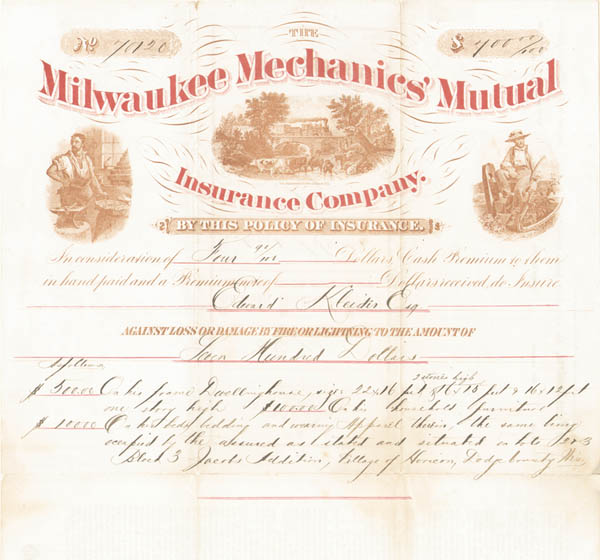 THE
No 70120 $ 700 00/100
Milwaukee Mechanics' Mutual
Insurance Company.
BY THIS POLICY OF INSURANCE.
In consideration of Four 90/100 Dollars Cash Premium to them
in hand paid and a Premium note of Dollars received, do Insure
Edward Esq
AGAINST LOSS OR DAMAGE BY FIRE OR LIGHTNING TO THE AMOUNT OF
Seven Hundred Dollars
as follows
2 stories high
$ 500.00 On his frame Dwellinghouse, size 22 x 16 feet & 16 x 18 feet & 16 x 12 feet
one story high $100.00 On his household furniture
$ 100.00 On his beds, bedding and wearing Apparel therein, the same being
occupied by the assured as stated and situated on lots 2 & 3
Block 3 Jacobs Addition, Village of Horicon, Dodge County Wis